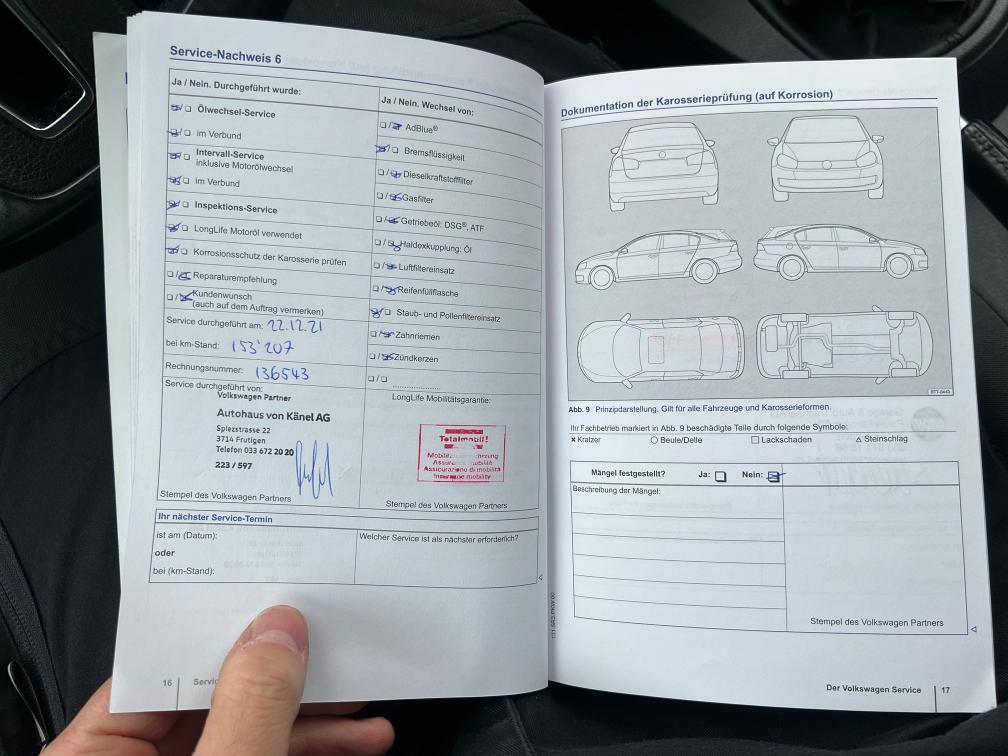 Service-Nachweis 6
Ja / Nein. Durchgeführt wurde:
Ölwechsel-Service
im Verbund
Intervall-Service
inklusive Motorölwechsel
im Verbund
Inspektions-Service
LongLife Motoröl verwendet
Korrosionsschutz der Karosserie prüfen
Reparaturempfehlung
Kundenwunsch
(auch auf dem Auftrag vermerken)
Service durchgeführt am: 22.12.21
bei km-Stand: 153'207
Rechnungsnummer: 136543
Service durchgeführt von:
Volkswagen Partner
Autohaus von Känel AG
Spiezstrasse 22
3714 Frutigen
Telefon 033 672 20 20
223 / 597
Stempel des Volkswagen Partners
Ja / Nein. Wechsel von:
AdBlue®
Bremsflüssigkeit
Dieselkraftstofffilter
Gasfilter
Getriebeöl: DSG®, ATF
Haldexkupplung: Öl
Luftfiltereinsatz
Reifenfüllflasche
Staub- und Pollenfiltereinsatz
Zahnriemen
Zündkerzen
LongLife Mobilitätsgarantie:
Totalmobil!
Assicurazione di mobilità
Insurance mobility
Stempel des Volkswagen Partners
Ihr nächster Service-Termin
ist am (Datum):
oder
bei (km-Stand):
Welcher Service ist als nächster erforderlich?
16 Servic
Dokumentation der Karosserieprüfung (auf Korrosion)
Abb. 9 Prinzipdarstellung. Gilt für alle Fahrzeuge und Karosserieformen.
Ihr Fachbetrieb markiert in Abb. 9 beschädigte Teile durch folgende Symbole:
x Kratzer Beule/Delle Lackschaden Steinschlag
Mängel festgestellt? Ja: Nein:
Beschreibung der Mängel:
Stempel des Volkswagen Partners
Der Volkswagen Service 17